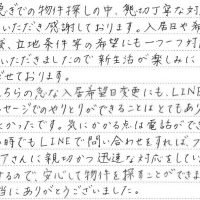 急ぎでの物件探しの中、親切丁寧な対
いただき感謝しております。入居日や
、立地条件等の希望にも一つ一つ対
いましたので新生活が楽しみに
せております。
ちらの急な入居希望日変更にも、LINE
セージでのやりとりができることはとてもあり
かったです。気にかかる点は電話ができ
時でもLINEで問い合わせをすれば、
アさんに親切かつ迅速な対応をしてい
るので、安心して物件を探すことができま
当にありがとうございました。